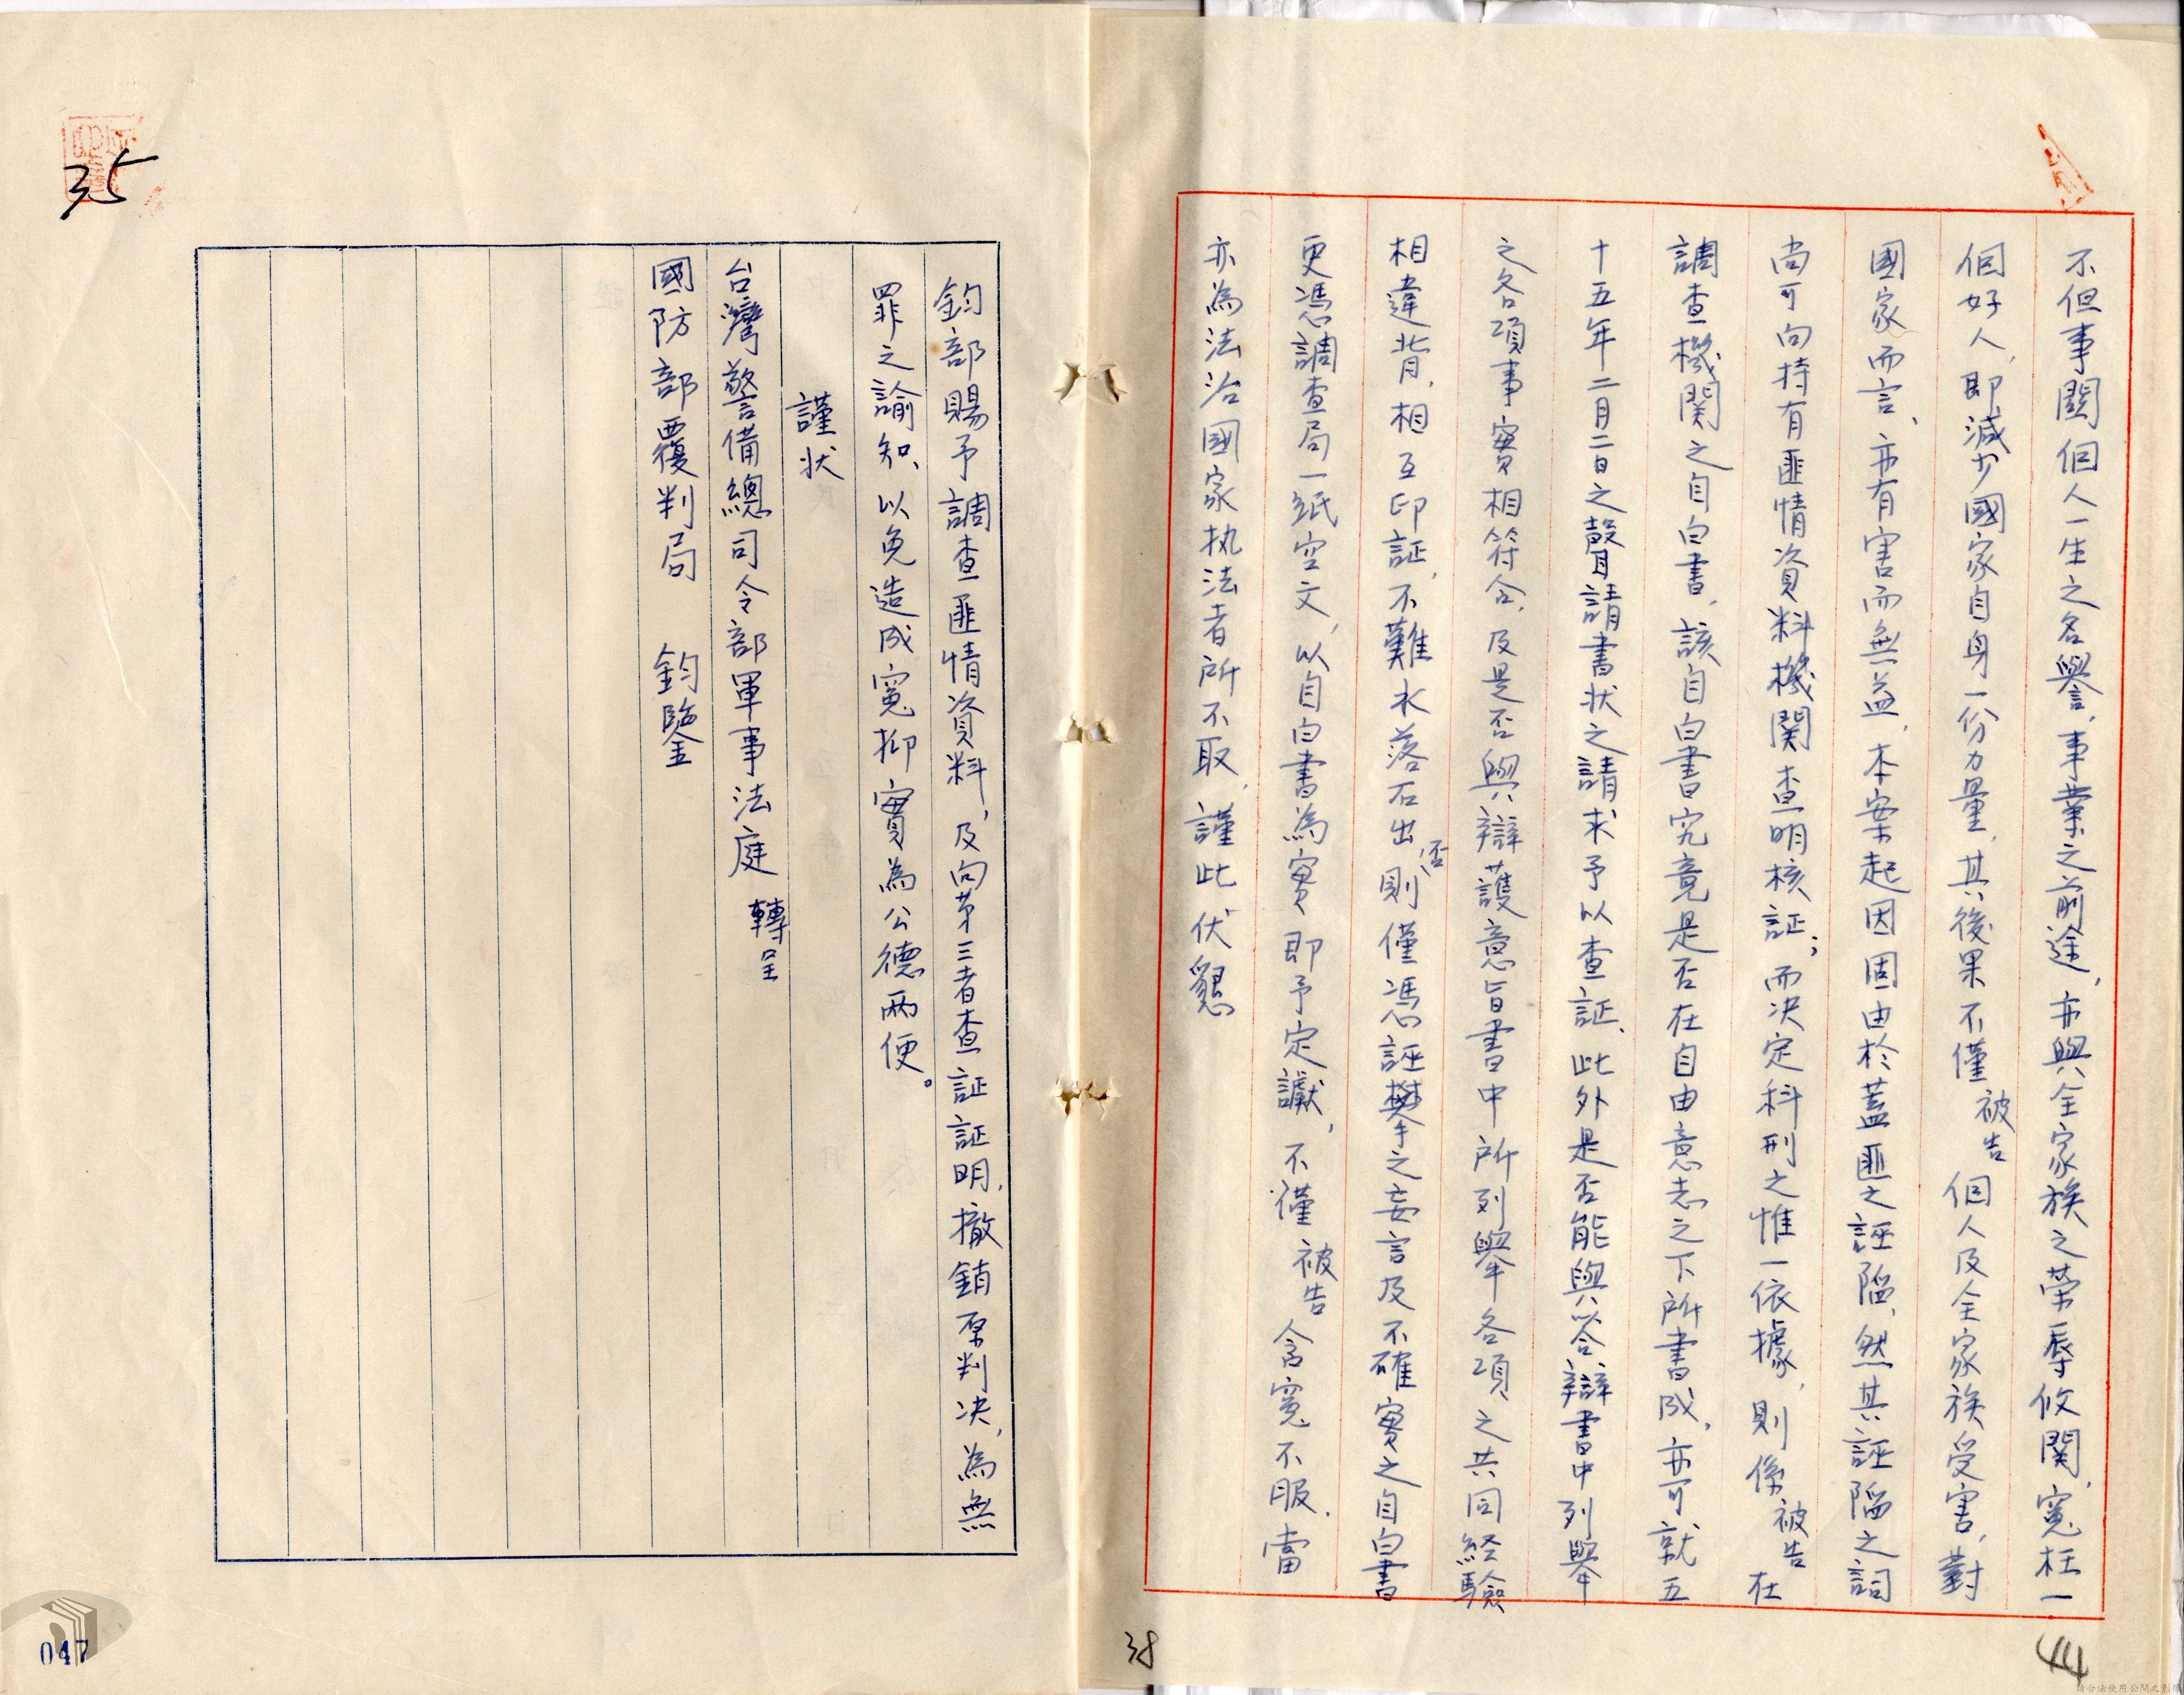 不但事關個人一生之名譽，事業之前途，亦與全家族之榮辱攸関，冤枉一
個好人，即減少國家自身一份力量，其後果不僅被告個人及全家族受害，對
國家而言、亦有害而無益，本案起因固由於蓋匪之誣陷，然其誣陷之詞
尚可向持有匪情資料機関查明核証；而決定科刑之惟一依據，則係被告在
調查機関之自白書，該自白書究竟是否在自由意志之下所書成，亦可就五
十五年二月二日之聲請書状之請求予以查証、此外是否能與答辯書中列舉
之各項事實相符合，及是否與辯護意旨書中所列舉各項之共同経驗
相違背，相互印証，不難水落石出，否則僅憑誣攀之妄言及不確實之自白書
更憑調查局一紙空文，以自白書為實即予定讞，不僅被告含冤不服，當
亦為法治國家执法者所不取，謹此伏懇
鈞部賜予調查匪情資料，及向苐三者查証証明，撤銷原判決，為無
罪之諭知、以免造成冤抑實為公德両便。
謹状
台灣警備總司令部軍事法庭 轉呈
國防部覆判局 鈞鑒
35
38
44
047
請合法使用公開之影像